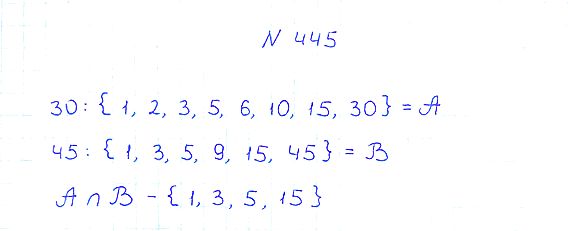 N 445
30: { 1, 2, 3, 5, 6, 10, 15, 30 } = A
45: { 1, 3, 5, 9, 15, 45 } = B
A ∩ B - { 1, 3, 5, 15 }